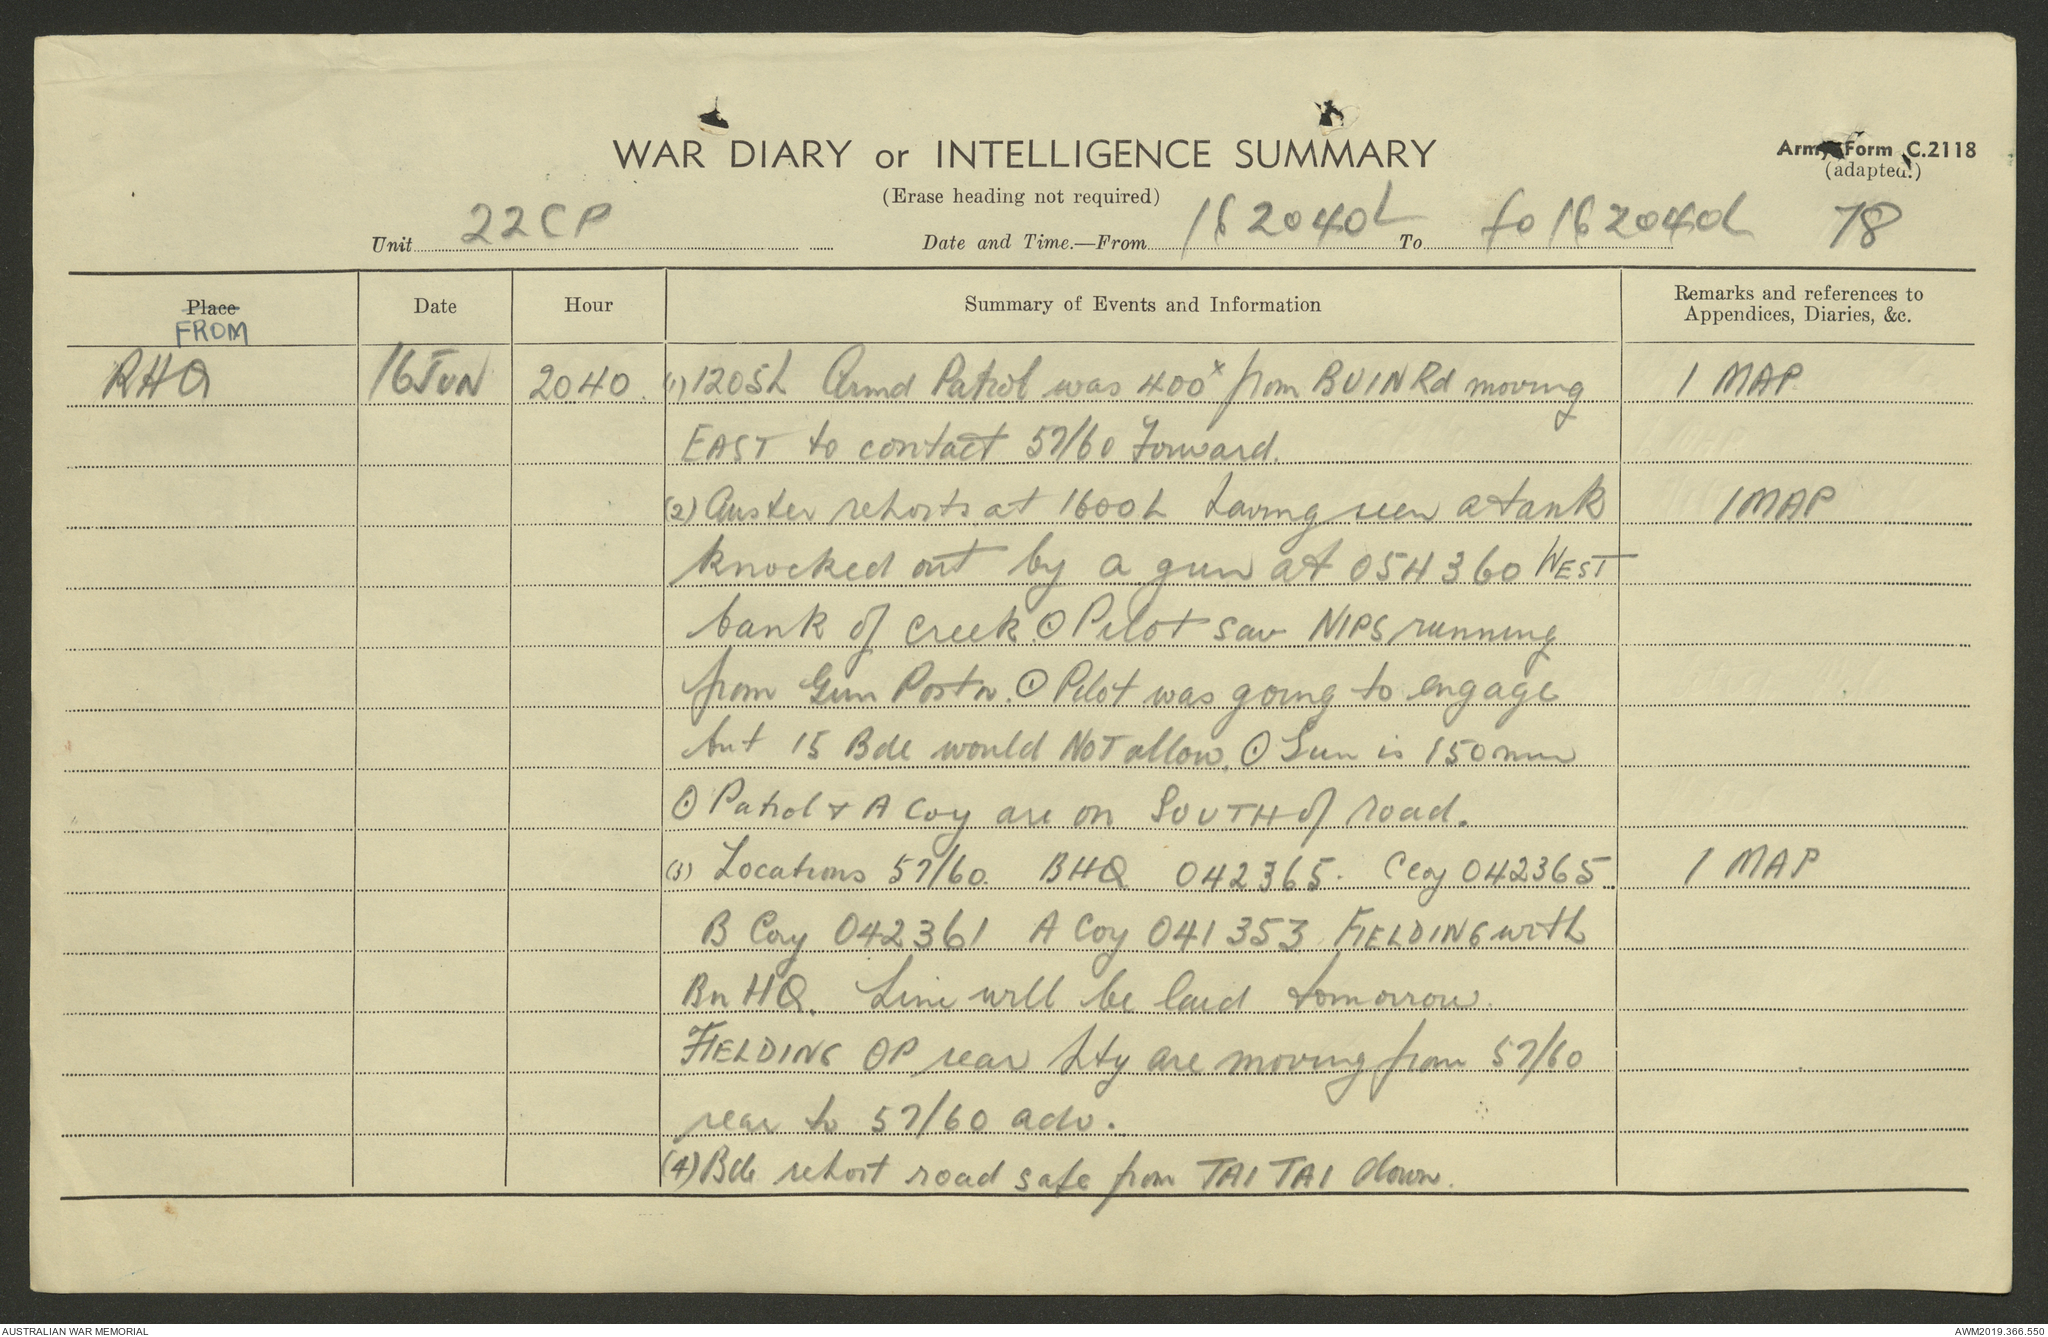 WAR DIARY or INTELLIGENCE SUMMARY
Army Form C.2118
(adapted.)
(Erase heading not required)
Unit 22CP Date and Time.—From 16 2040L To to 16 2040L 78
Place Date Hour Summary of Events and Information Remarks and references to
Appendices, Diaries, &c.
FROM
RHQ 16 JUN 2040. (1) 1205L Armd Patrol was 400x from BUIN Rd moving 1 MAP
EAST to contact 57/60 Forward.
(2) Auster reports at 1600L having seen a tank 1 MAP
knocked out by a gun at 054360 WEST
bank of creek. ⊙ Pilot saw NIPS running
from Gun Postn. ⊙ Pilot was going to engage
but 15 Bde would NOT allow. ⊙ Gun is 150mm
⊙ Patrol + A Coy are on SOUTH of road.
(3) Locations 57/60. BHQ 042365. C Coy 042365. 1 MAP
B Coy 042361 A Coy 041353 FIELDING with
Bn HQ. Line will be laid tomorrow.
FIELDING OP rear pty are moving from 57/60
rear to 57/60 adv.
(4) Bde report road safe from TAI TAI down.
AUSTRALIAN WAR MEMORIAL
AWM2019.366.550